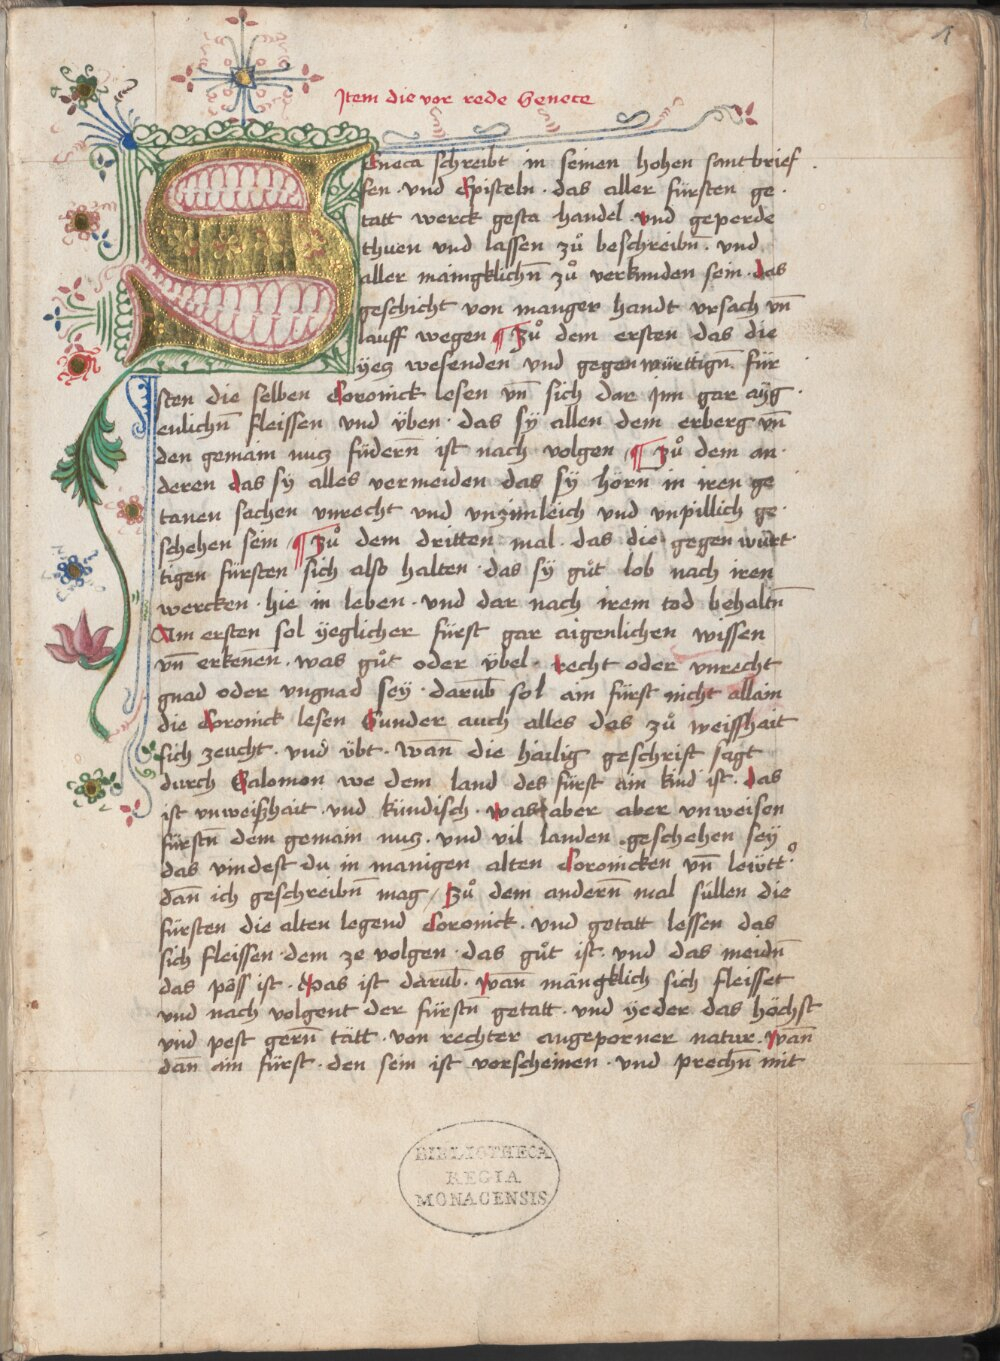 1
Jtem die vor rede Senece
Seneca schreibt in seinen hohen santbrief
fen · vnd Episteln · das aller fürsten ge ·
tatt werck gesta handel · vnd geperde
thuen vnd lassen zů beschreibñ · vnd
aller mainigklichñ zů verkunden sein · das
geschicht von manger handt vrsach vñ
lauff wegen ¶ Zů dem ersten das die
yetz wesenden vnd gegenwürttigñ für
sten die selben Coronick lesen vñ sich dar Jnn gar ayg ·
enlichñ fleissen vnd ÿben · das sÿ allen dem erberg vñ
den gemain nutz füdern̄ ist nach volgen / ¶ Zů dem an ·
deren das sÿ alles vermeiden das sÿ hörn in iren ge
tanen sachen vnrecht vnd vnzimleich vnd vnpillich ge ·
schehen sein / ¶ Zů dem dritten mal · das die gegen würt
tigen fürsten sich also halten · das sÿ gůt lob nach iren
wercken · hie in leben · vnd dar nach irem tod behaltñ
Am ersten sol ÿeglicher fürst gar aigenlichen wissen
vñ erkenen · was gůt oder v̈bel · recht oder vnrecht
gnad oder vngnad seÿ · darūb sol ain fürst nicht allain
die Coronick lesen Sunder auch alles das zů weisshait
sich zeucht · vnd v̈bt · wan̄ die hailig geschrift sagt
durch Salomon we dem land des fürst ain kind ist · das
ist vnweißhait · vnd kündisch · was aber aber vnweisen
fürstñ dem gemain nutz · vnd vil landen geschehen seÿ
das vindest du in manigen alten Coronicken vñ
dan̄ ich geschreibñ mag / Zů dem andern mal süllen die
fürsten die alten legend Coronick · vnd getatt lessen das
sich fleissen · dem ze volgen · das gůt ist · vnd das meidñ
das pöss ist · Was ist darūb · wan̄ mängklich sich fleisset
vnd nach volgent der fürstñ getatt · vnd ÿeder das höchst
vnd pest gern̄ tätt · von rechter angeporner natur · wan̄
dan̄ ain fürst · den sein ist vorscheinen · vnd prechñ mit
BIBLIOTHECA
REGIA
MONACENSIS